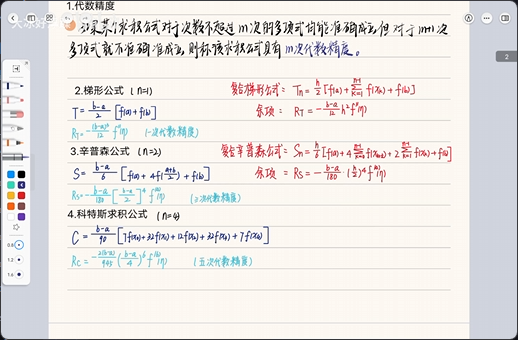 1.代数精度
如果某个求积公式对于次数不超过m次的多项式均能准确成立,但对于m+1次
多项式就不准确准成立,则称该求积公式具有m次代数精度。
2.梯形公式 (n=1)
T = (b-a)/2 [f(a)+f(b)]
R_T = -(b-a)³/12 f''(η) (一次代数精度)
复合梯形公式: Tn = h/2 [f(a)+2∑f(xk)+f(b)]
余项: RT = -(b-a)/12 h² f''(η)
3.辛普森公式 (n=2)
S = (b-a)/6 [f(a)+4f((a+b)/2)+f(b)]
Rs = -(b-a)/180 [(b-a)/2]⁴ f⁽⁴⁾(η)
复合辛普森公式: Sn = h/6 [f(a)+4∑f(xk+½)+2∑f(xk)+f(b)]
余项: Rs = -(b-a)/180 (h/2)⁴ f⁽⁴⁾(η)
4.科特斯求积公式 (n=4)
C = (b-a)/90 [7f(x₀)+32f(x₁)+12f(x₂)+32f(x₃)+7f(x₄)]
Rc = -2(b-a)/945 ((b-a)/4)⁶ f⁽⁶⁾(η) (五次代数精度)
0.8
1.2
1.6
2